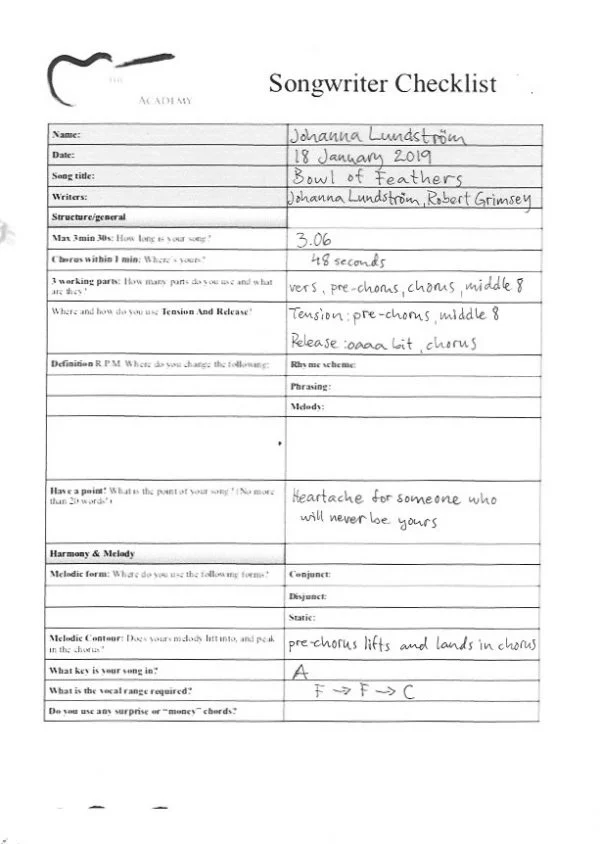 THE
ACADEMY
Songwriter Checklist
Name: Johanna Lundström
Date: 18 January 2019
Song title: Bowl of Feathers
Writers: Johanna Lundström, Robert Grimsey
Structure/general
Max 3min 30s: How long is your song? 3.06
Chorus within 1 min: Where's yours? 48 seconds
3 working parts: How many parts do you use and what
are they? vers, pre-chorus, chorus, middle 8
Where and how do you use Tension And Release? Tension: pre-chorus, middle 8
Release: oaaa bit, chorus
Definition R.P.M. Where do you change the following: Rhyme scheme:
Phrasing:
Melody:
Have a point! What is the point of your song? (No more
than 20 words!) Heartache for someone who
will never be yours
Harmony & Melody
Melodic form: Where do you use the following forms? Conjunct:
Disjunct:
Static:
Melodic Contour: Does yours melody lift into, and peak
in the chorus? pre-chorus lifts and lands in chorus
What key is your song in? A
What is the vocal range required? F → F → C
Do you use any surprise or "money" chords?